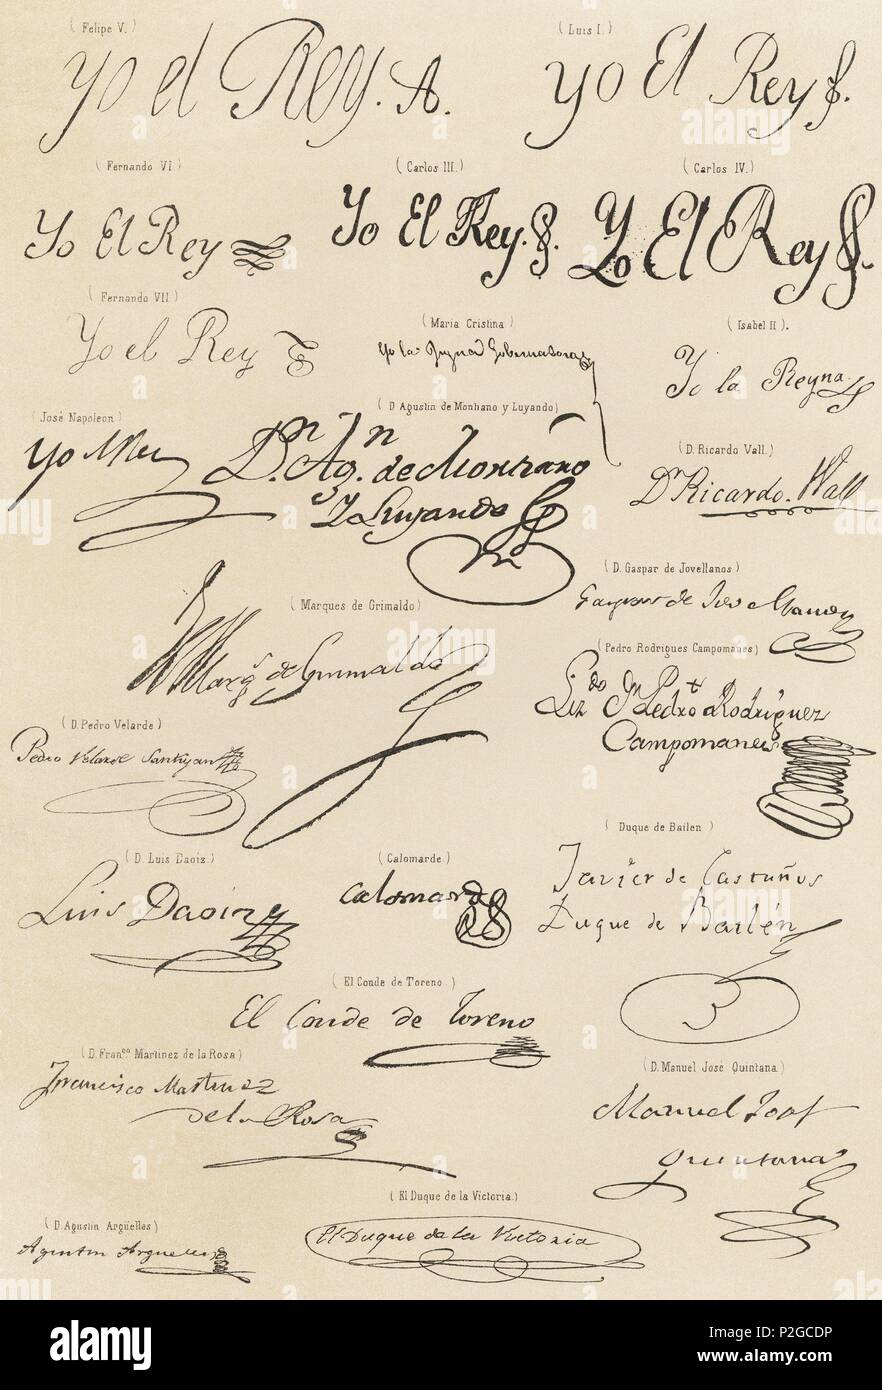 ( Felipe V. )
Yo el Rey. A.
( Luis I. )
Yo El Rey
( Fernando VI. )
Yo El Rey
( Carlos III. )
Yo El Rey.
( Carlos IV. )
Yo El Rey
( Fernando VII )
Yo el Rey
( Maria Cristina )
Yo la Reyna Gobernadora
( Isabel II ).
Yo la Reyna
(José Napoleon)
Yo el Rey
( D Agustin de Montiano y Luyando)
D.n Ag.n de Montiano
y Luyando
( D. Ricardo Vall. )
Dn Ricardo. Wall
( D. Gaspar de Jovellanos )
Gaspar de Jove Llanos
( Marques de Grimaldo)
el Marq.s de Grimaldo
(Pedro Rodrigues Campomanes)
Liz.do Dn Pedro Rodriguez
Campomanes
( D. Pedro Velarde )
Pedro Velarde Santiyan
( Duque de Bailen )
Javier de Castaños
Duque de Bailén
( D. Luis Daoiz. )
Luis Daoiz
( Calomarde. )
Calomarde
( El Conde de Toreno. )
El Conde de Toreno
( D. Fran.co Martinez de la Rosa )
Francisco Martinez
de la Rosa
( D. Manuel José Quintana.)
Manuel Josef
Quintana
( El Duque de la Victoria.)
El Duque de la Victoria
( D. Agustin Argüelles)
Agustin Arguelles
alamy
alamy stock photo
P2GCDP
www.alamy.com